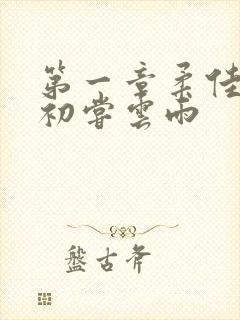 第一章柔佳
初尝雲雨
盤古斧